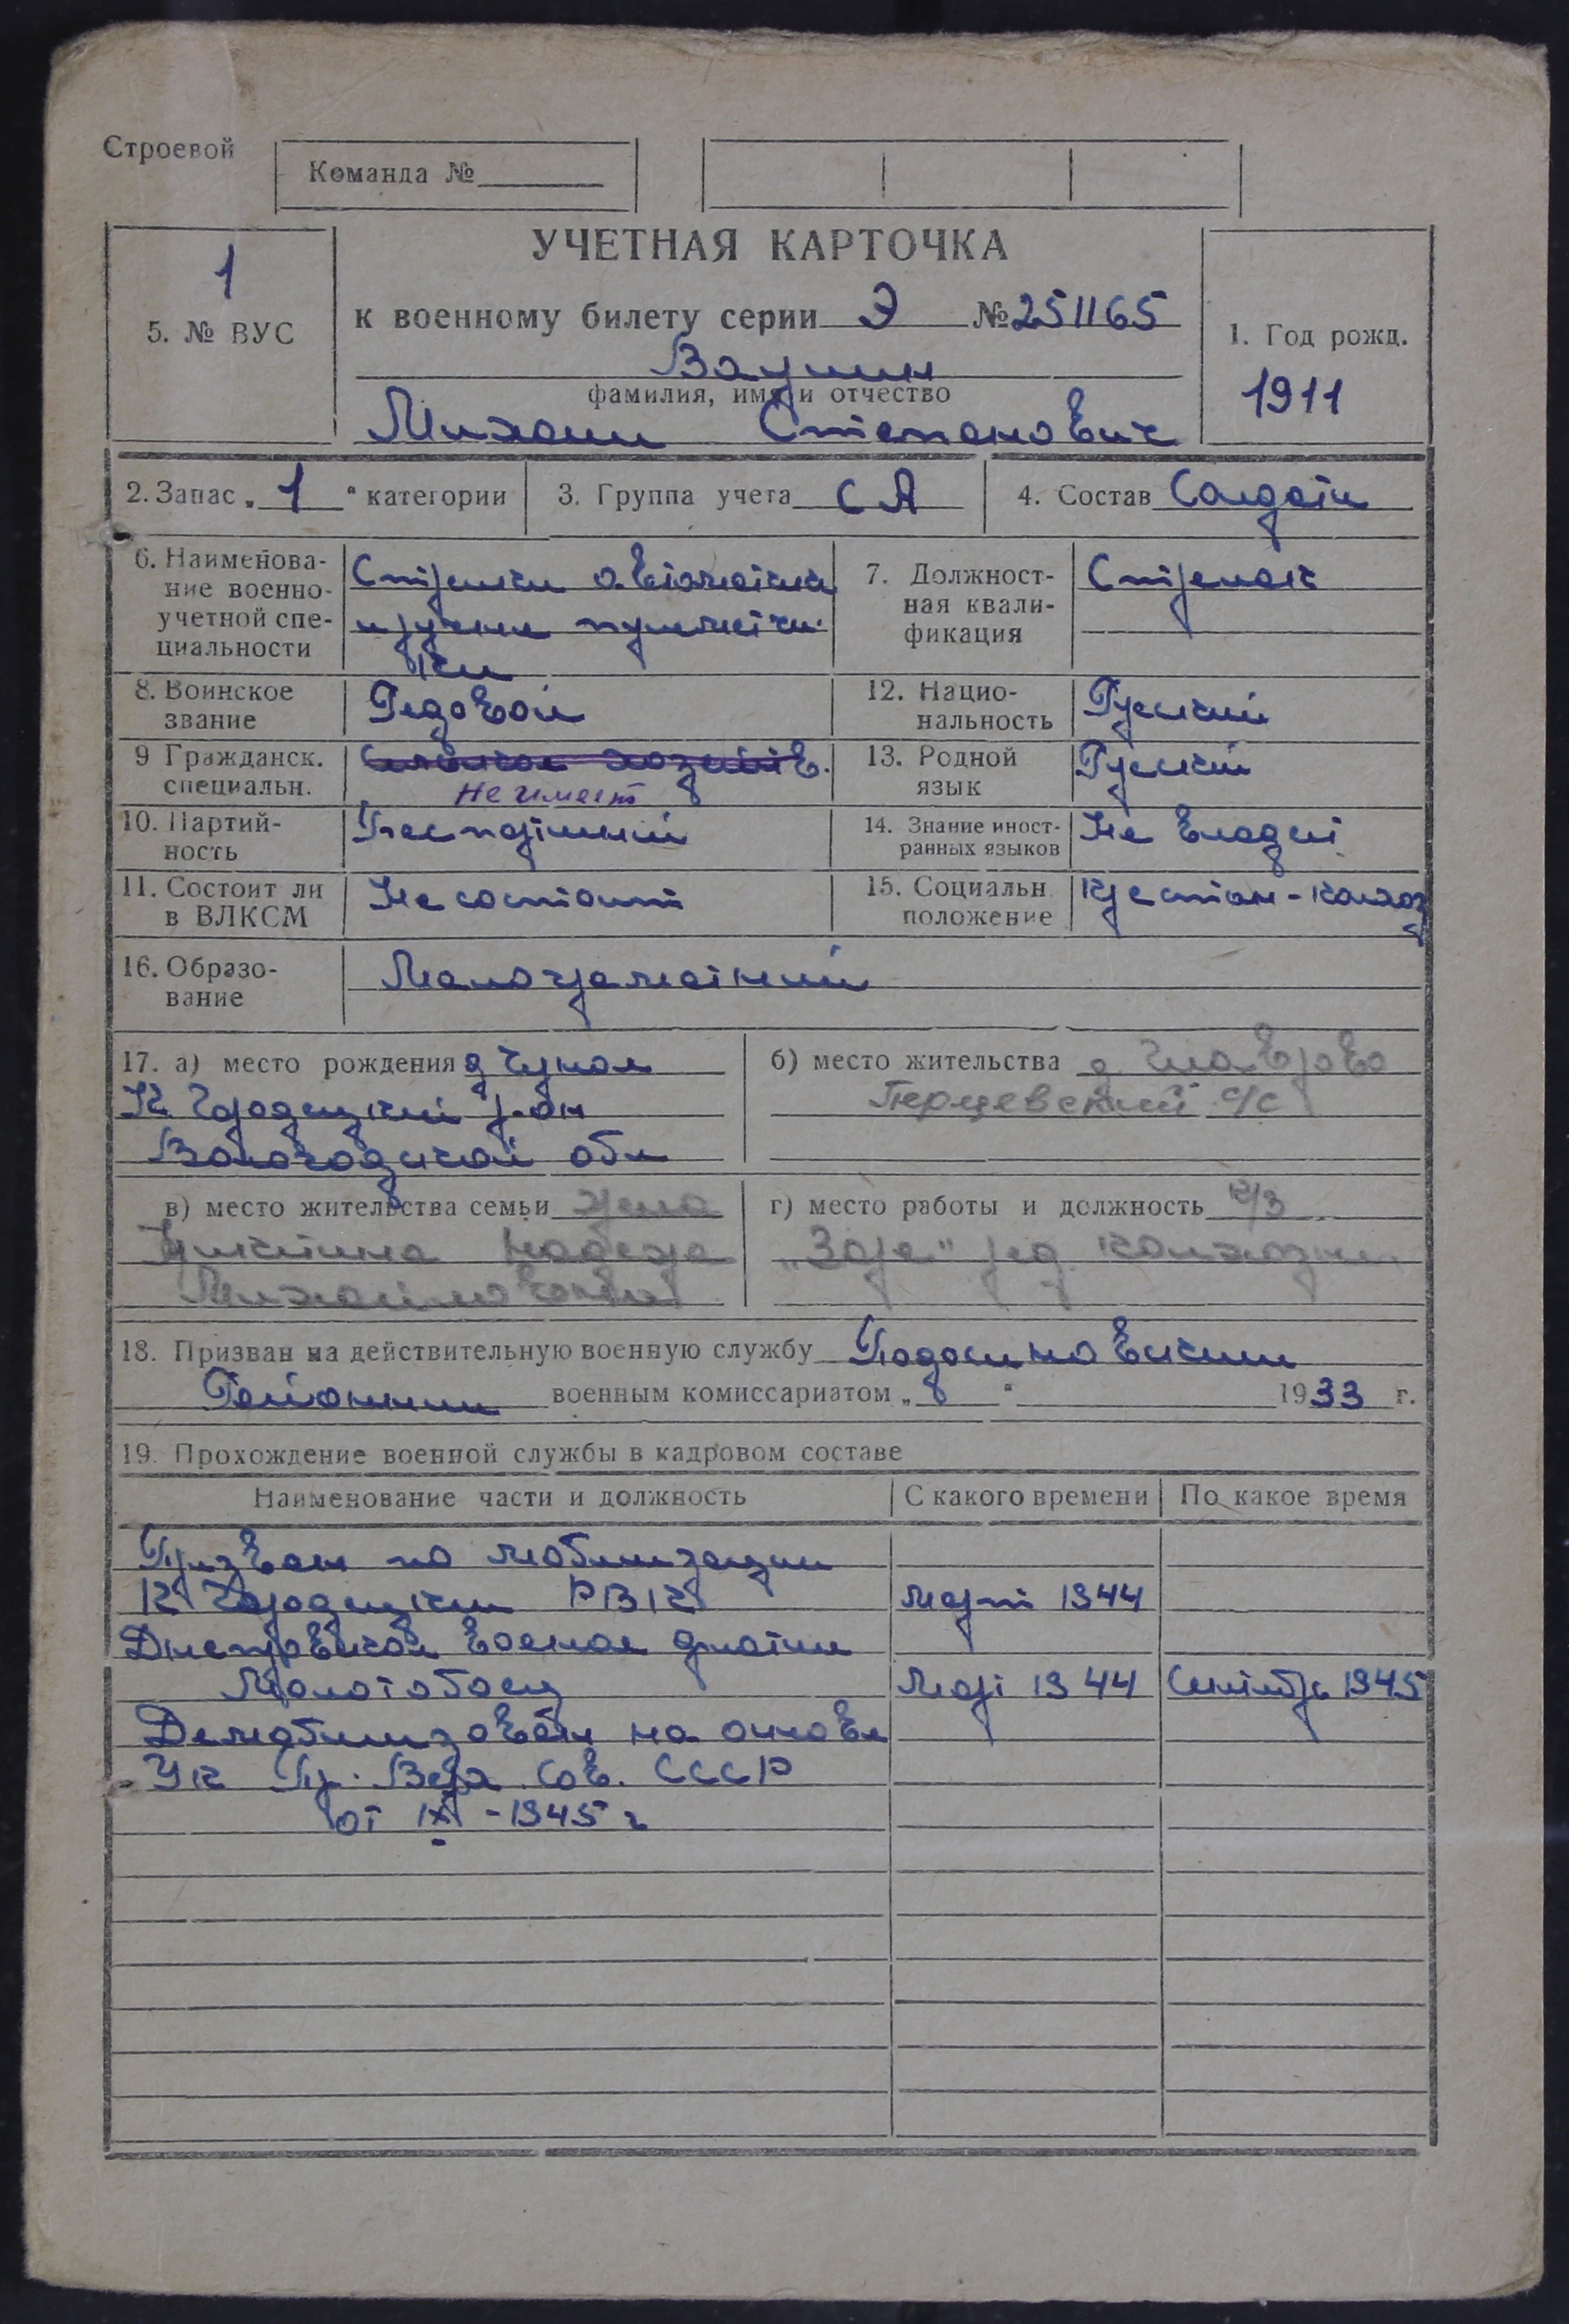 Строевой
Команда №
УЧЕТНАЯ КАРТОЧКА
1
5. № ВУС
к военному билету серии Э № 251165
1. Год рожд.
1911
фамилия, имя и отчество
Михаил Степанович
2. Запас „ 1 “ категории
3. Группа учета СА
4. Состав Солдаты
6. Наименование военно-учетной специальности
Стрелки автоматчики
и ручные пулеметчики
7. Должностная квалификация
Стрелок
8. Воинское звание
Рядовой
12. Национальность
Русский
9 Гражданск. специальн.
Не имеет
13. Родной язык
Русский
10. Партийность
Беспартийный
14. Знание иностранных языков
Не владеет
11. Состоит ли в ВЛКСМ
Не состоит
15. Социальн. положение
Крестьян-колхоз
16. Образование
Малограмотный
17. а) место рождения д
К Городецкий р-он
Вологодской обл
б) место жительства д.
с/с
в) место жительства семьи жена
Михайловна
г) место работы и должность к/з
„Заря" ряд. колхозник
18. Призван на действительную военную службу Подосиновским
Районным военным комиссариатом „ “ 1933 г.
19. Прохождение военной службы в кадровом составе
Наименование части и должность
С какого времени
По какое время
Призван по мобилизации
К Городецким РВК
Март 1944
Днепровская военная флотилия
Молотобоец
Март 1944
Сентябрь 1945
Демобилизован на основ
Ук Пр. Верх. Сов. СССР
от IX - 1945 г